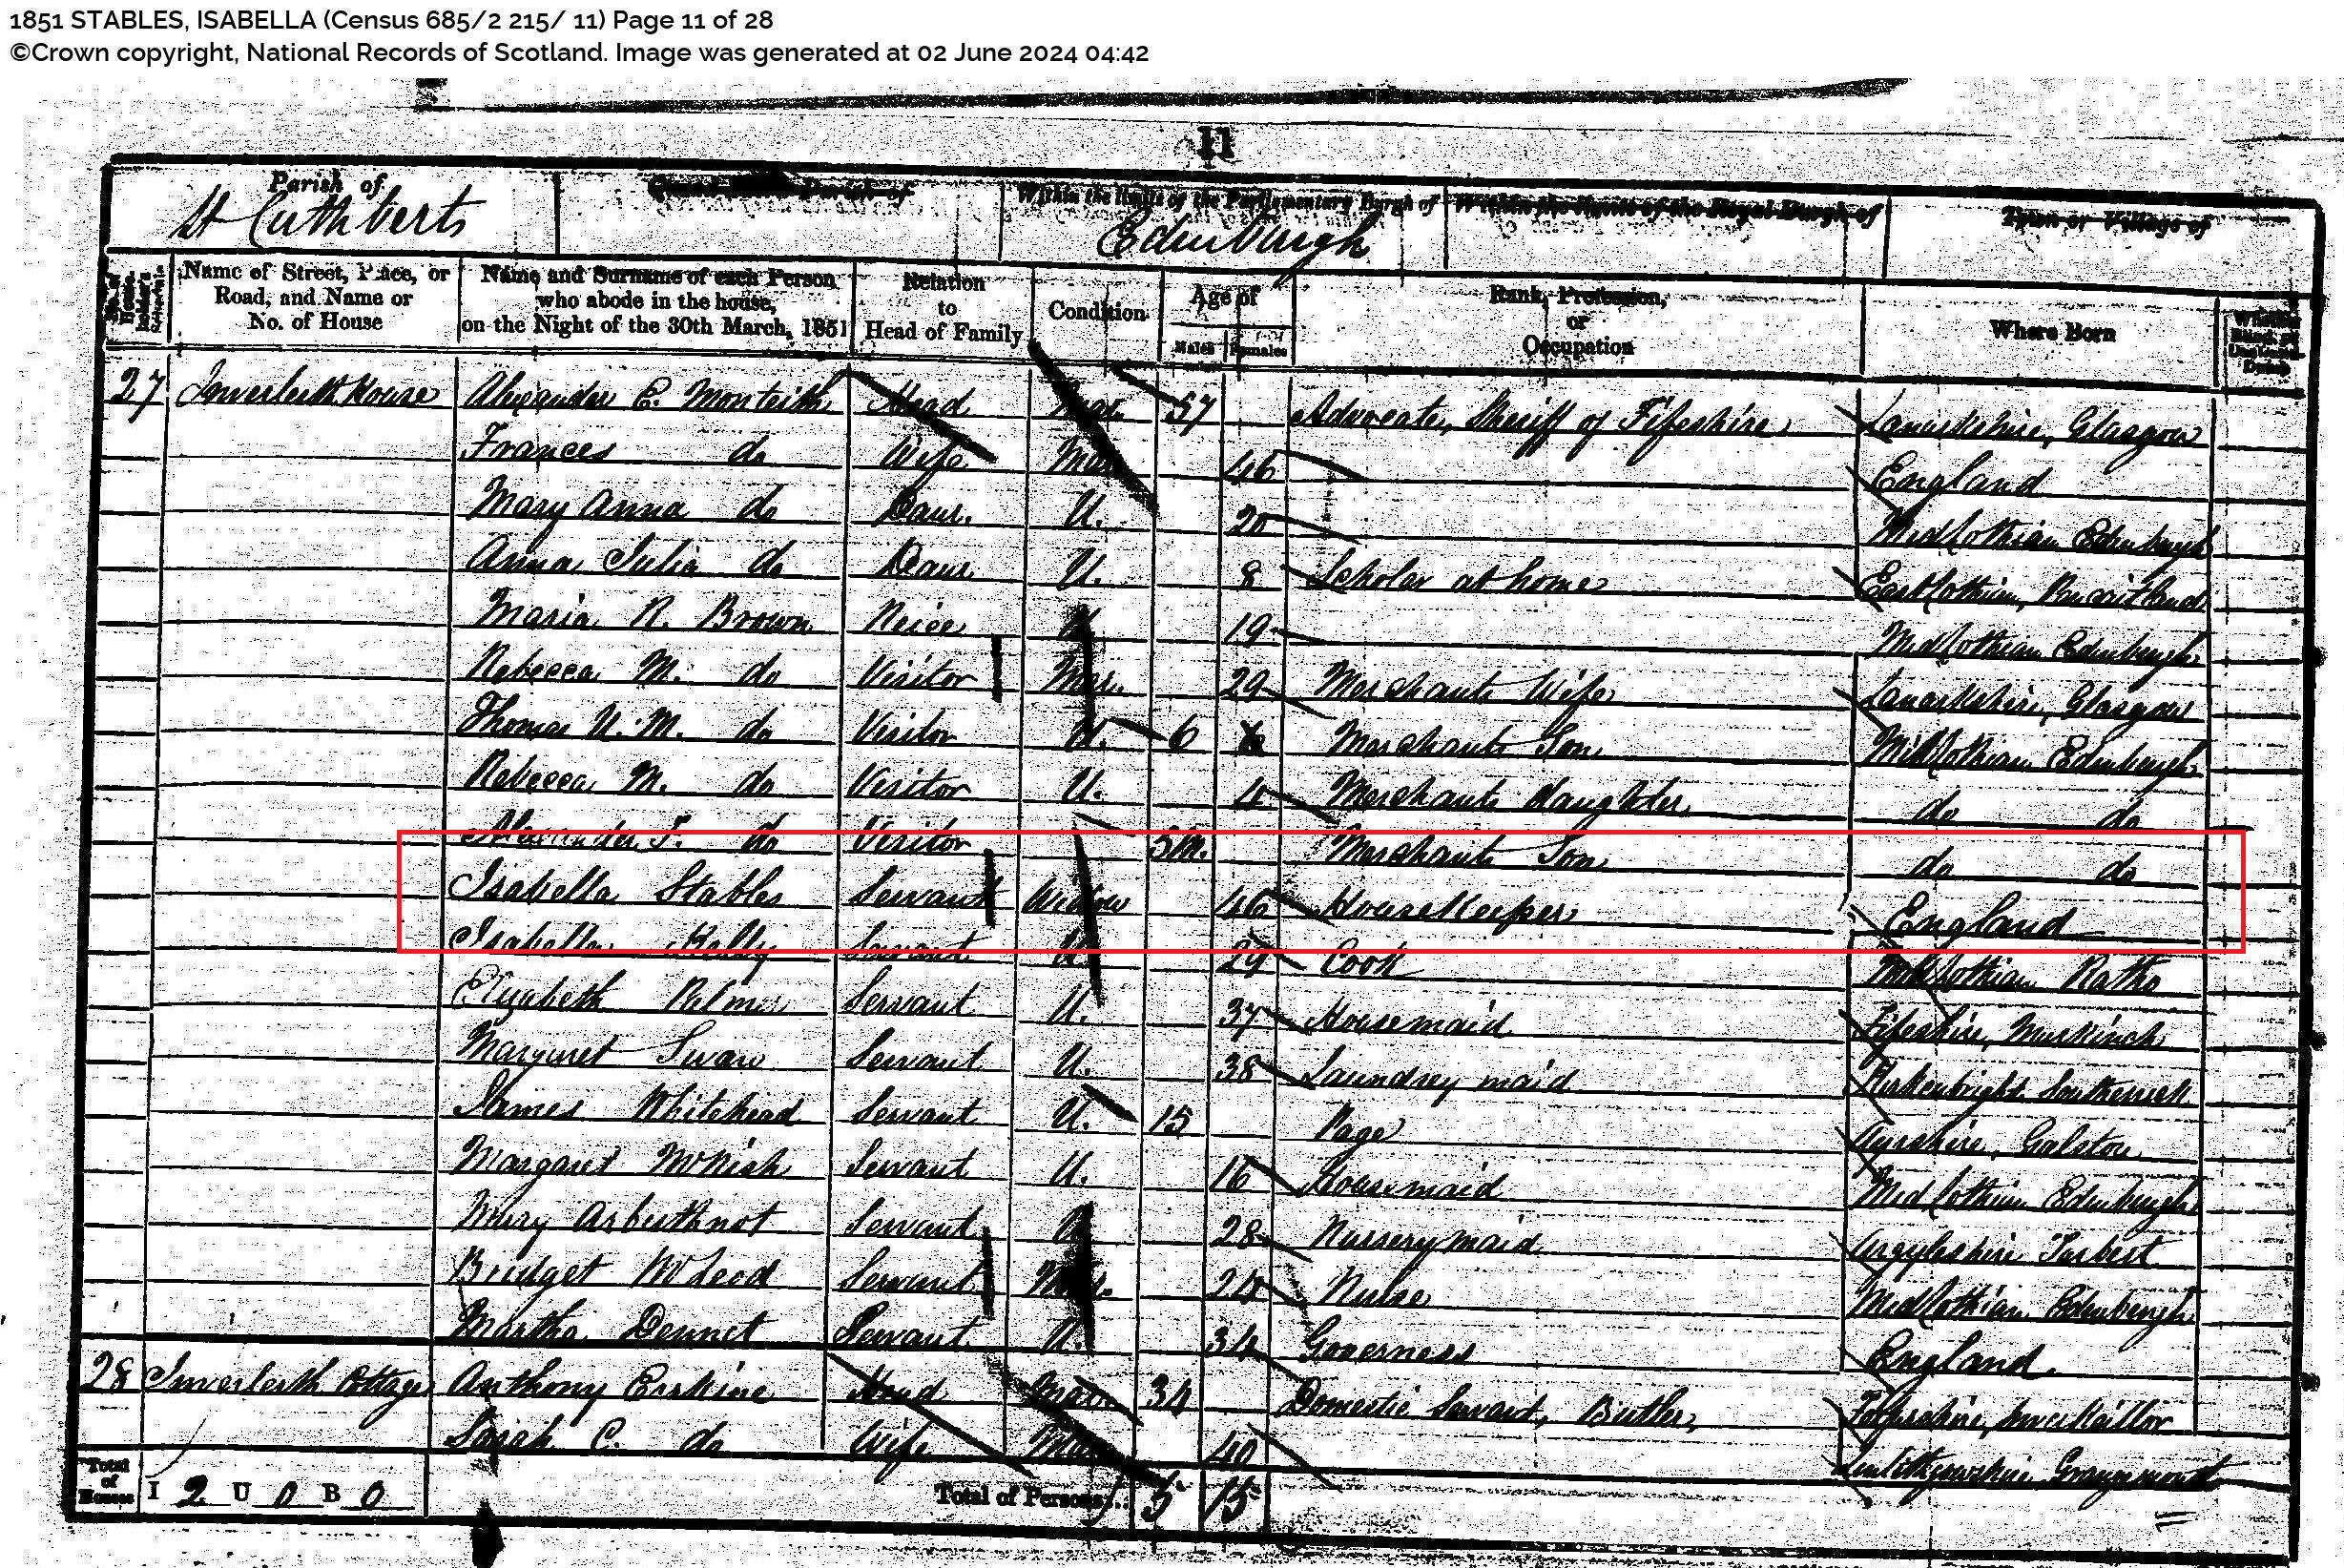 1851 STABLES, ISABELLA (Census 685/2 215/ 11) Page 11 of 28
©Crown copyright, National Records of Scotland. Image was generated at 02 June 2024 04:42
11
Parish of Parish of Within the limits of the Parliamentary Burgh of Within the limits of the Royal Burgh of Town or Village of
St Cuthberts Edinburgh
Name of Street, Place, or Road, and Name or No. of House
Name and Surname of each Person who abode in the house, on the Night of the 30th March, 1851
Relation to Head of Family
Condition
Age of
Males Females
Rank, Profession, or Occupation
Where Born
27 Inverleith House Alexander E. Monteith Head Mar. 57 Advocate, Sheriff of Fifeshire Lanarkshire, Glasgow
Frances do Wife Mar 46 England
Mary Anna do Daur. U. 20 Midlothian Edinburgh
Anna Julia do Daur. U. 8 Scholar at home East Lothian, Pencaitland
Maria R. Brown Neice U 19 Midlothian Edinburgh
Rebecca M. do Visitor Mar. 29 Merchants Wife Lanarkshire, Glasgow
Thomas U. M. do Visitor U. 6 Merchants Son Midlothian Edinburgh
Rebecca M. do Visitor U. 4 Merchants daughter do do
Alexander F. do Visitor 3M. Merchants Son do do
Isabella Stables Servant Widow 46 HouseKeeper England
Isabella Servant U 29 Cook Midlothian Ratho
Elizabeth Servant U. 37 Housemaid Fifeshire, Markinch
Margaret Swan Servant U. 38 Laundrey maid Kirkcudbright
James Whitehead Servant U. 15 Page Ayrshire, Galston
Margaret McNish Servant U. 16 Housemaid Midlothian Edinburgh
Mary Arbuthnot Servant U 28 Nurserymaid Argyleshire Tarbert
Bridget McLeod Servant Mar. Nurse Midlothian Edinburgh
Martha Dennet Servant U. 34 Governess England.
28 Inverleith Cottage Anthony Erskine Head Mar. 34 Domestic Servant, Butler,
Sarah C. do Wife Mar 40 Linlithgowshire Grangemouth
Total of Houses I 2 U 0 B 0 Total of Persons... 5 15